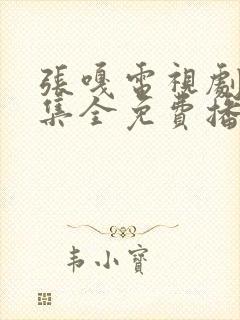 張嘎電視劇
集全免費播
韦小寶